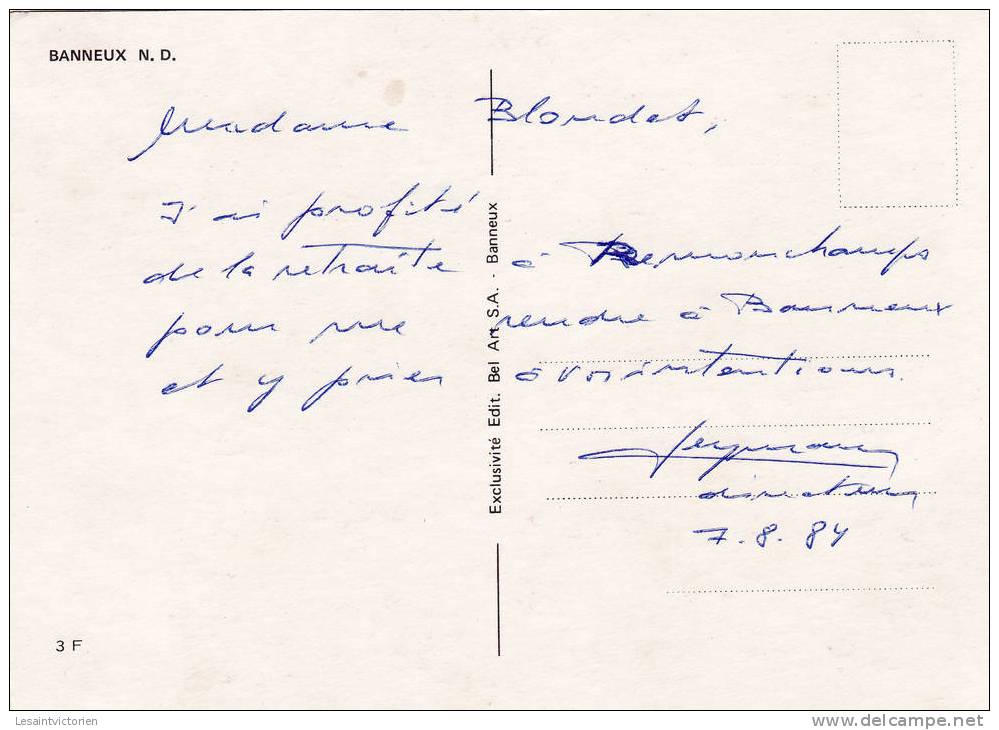 BANNEUX N. D.
Madame Blondet,
J'ai profité
de la retraite à Remonchamps
pour me rendre à Banneux
et y prier à vos intentions.
directeur
7.8.84
Exclusivité Edit. Bel Art S.A. - Banneux
3 F
Lesaintvictorien
delcampe.net